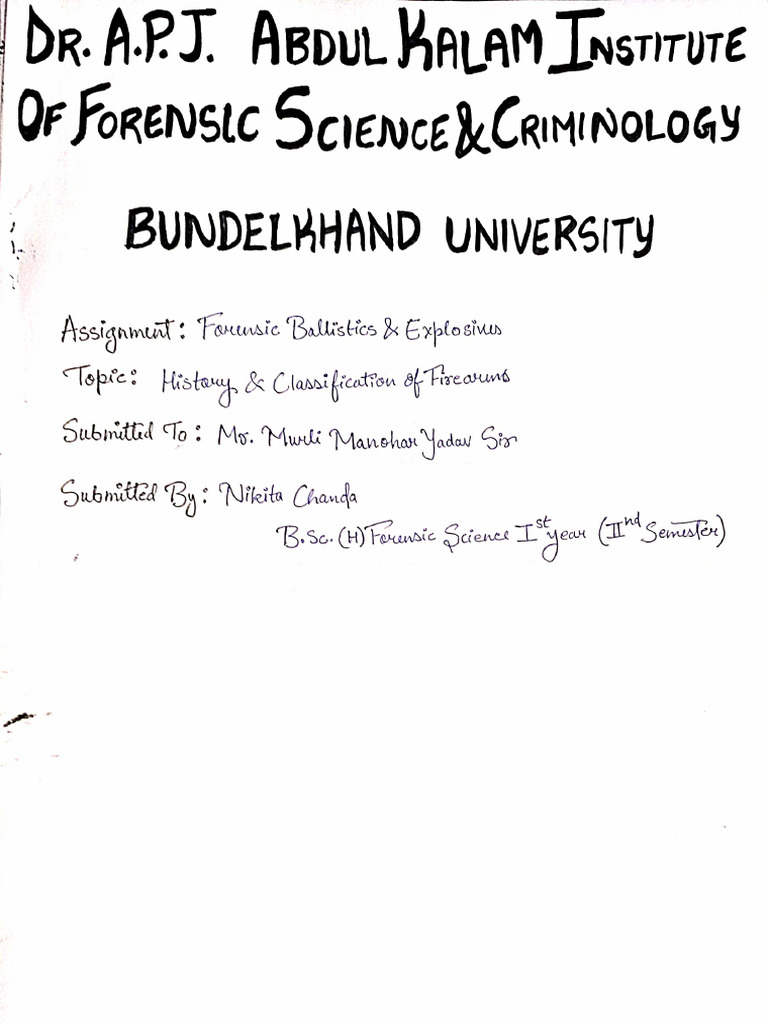 DR. A.P.J. ABDUL KALAM INSTITUTE
OF FORENSIC SCIENCE & CRIMINOLOGY
BUNDELKHAND UNIVERSITY
Assignment: Forensic Ballistics & Explosives
Topic: History & Classification of Firearms
Submitted To: Mr. Murli Manohar Yadav Sir
Submitted By: Nikita Chanda
B.Sc. (H) Forensic Science Ist year (IInd Semester)